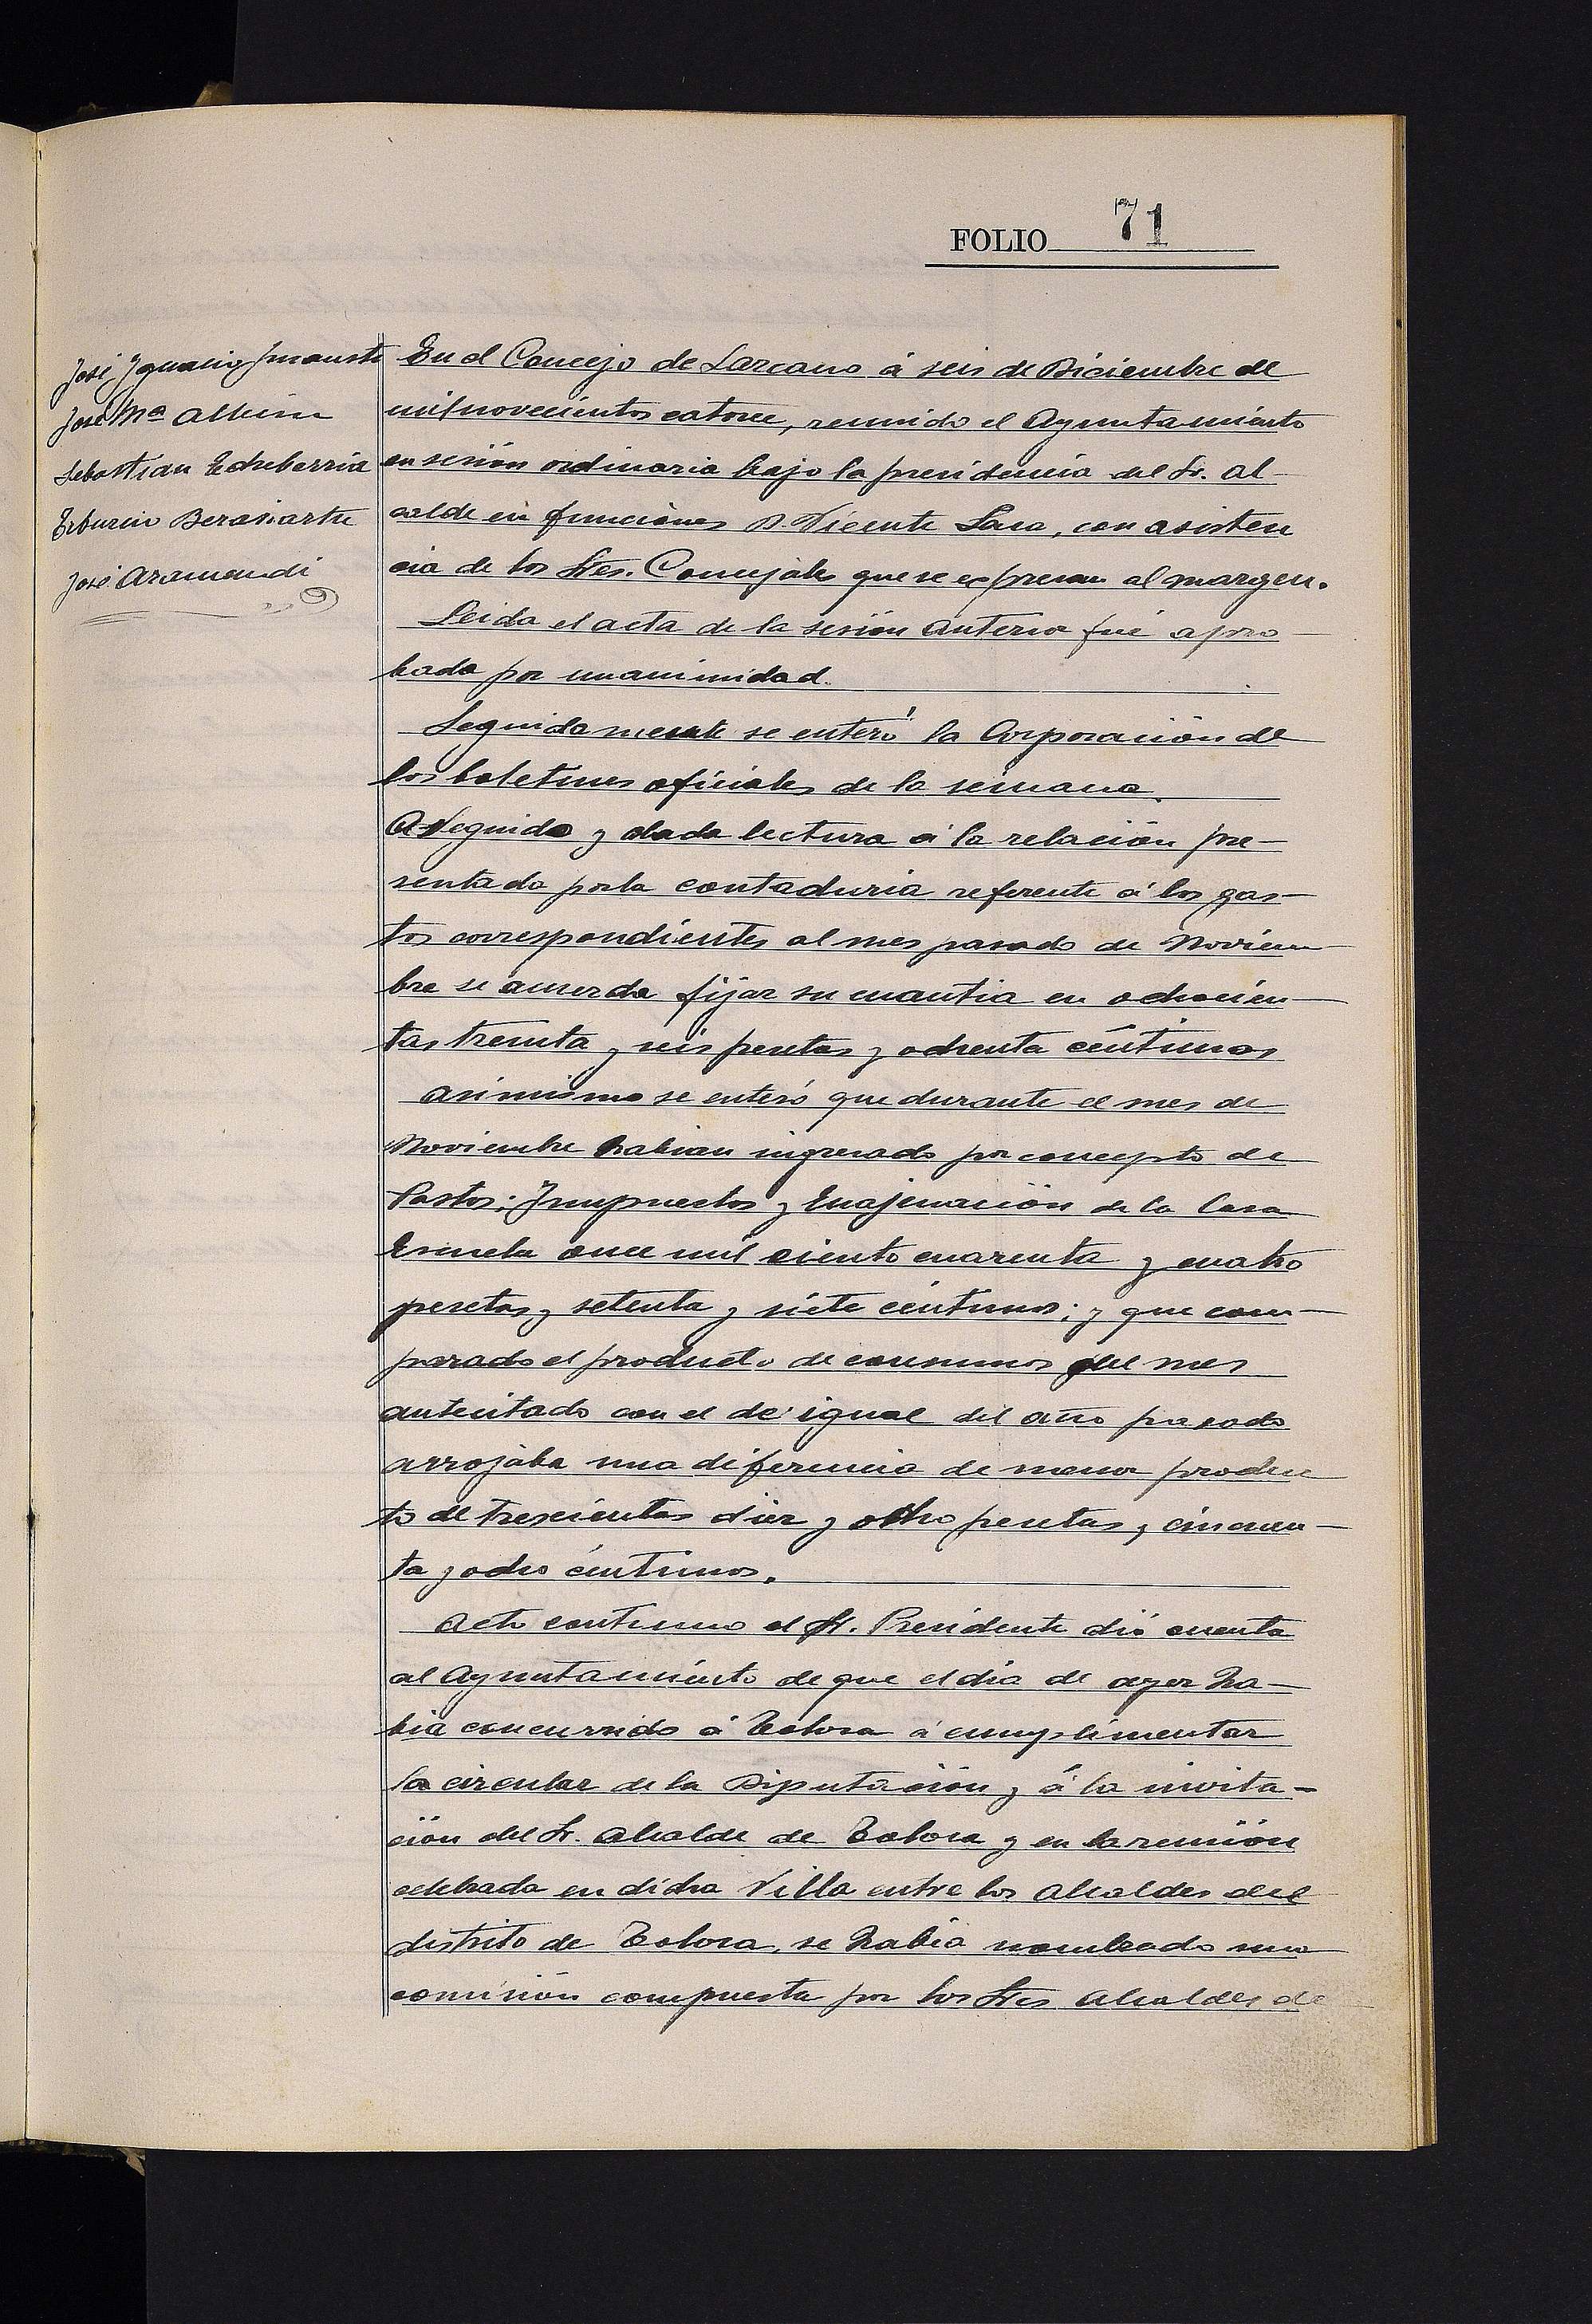 FOLIO 71
José Ignacio Imauste
José Mª Albisu
Sebastian Echeberria
Tiburcio Berasiartu
José Aramendi
En el Concejo de Lazcano á seis de Diciembre de
mil novecientos catorce, reunido el Ayuntamiento
en sesión ordinaria bajo la presidencia del Sr. Al-
calde en funciones D. Vicente Lasa, con asisten
cia de los Sres. Concejales que se expresan al margen.
Leida el acta de la sesión anterior fué apro-
bada por unanimidad.
Seguidamente se enteró la Corporación de
los boletines oficiales de la semana.
A seguida y dada lectura á la relación pre-
sentada por la contaduria referente á los gas-
tos correspondientes al mes pasado de Noviem-
bre se acuerda fijar su cuantia en ochocien-
tas treinta y seis pesetas y ochenta céntimos
Asimismo se enteró que durante el mes de
Noviembre habian ingresado por concepto de
Pastos; Impuestos y Enajenación de la Casa
Escuela once mil ciento cuarenta y cuatro
pesetas y setenta y siete céntimos; y que com-
parado el producto de consumos del mes
antecitado con el de igual del año pasado
arrojaba una diferencia de menor produc
to de trescientas diez y ocho pesetas y cincuen-
ta y ocho céntimos.
Acto continuo el Sr. Presidente dió cuenta
al Ayuntamiento de que el dia de ayer ha-
bia concurrido á Tolosa á cumplimentar
la circular de la Diputación y á la invita-
ción del Sr. Alcalde de Tolosa y en la reunión
celebrada en dicha Villa entre los Alcaldes del
distrito de Tolosa, se habia nombrado una
comisión compuesta por los Sres Alcaldes de